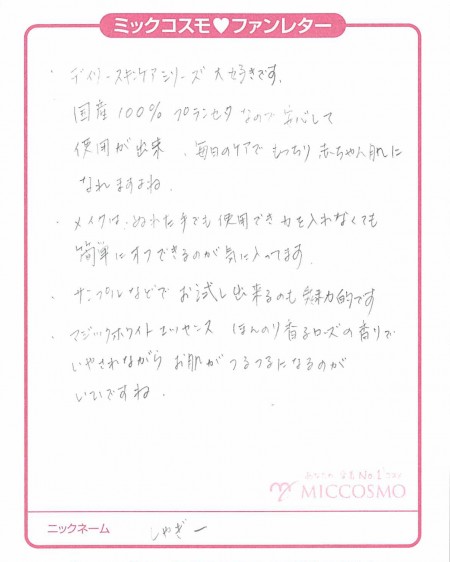 ミックコスモ♥ファンレター
・デイリースキンケアシリーズ 大好きです。
国産100% プラセンタ なので 安心して
使用が出来、毎日のケアで もっちり 赤ちゃん肌に
なれますよね。
・メイクは、ぬれた手でも使用でき力を入れなくても
簡単にオフできるのが気に入ってます。
・サンプルなどで お試し出来るのも 魅力的です
・マジックホワイトエッセンス ほんのり香るローズの香りで
いやされながら お肌がつるつるになるのが
いいですね。
MICCOSMO
ニックネーム しゃぎー